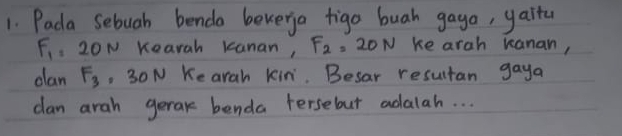 1. Pada Sebuah benda bekerja tiga buah gaya, yaitu
F₁ = 20 N kearah kanan, F₂ = 20 N ke arah kanan,
dan F₃ = 30 N ke arah kiri. Besar resultan gaya
dan arah gerak benda tersebut adalah ...